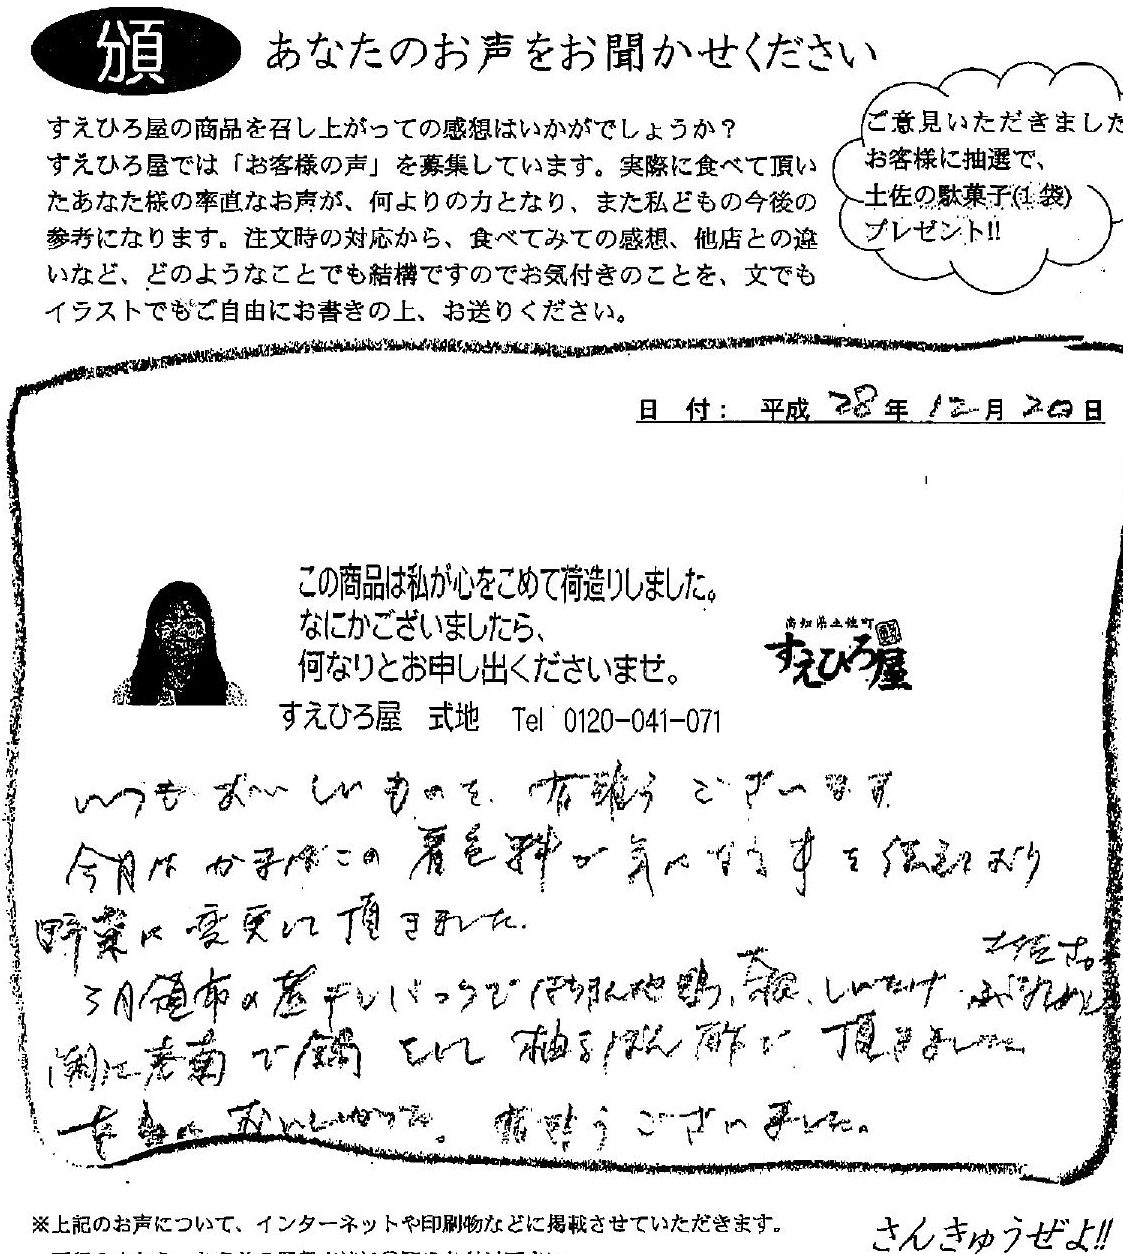 頒 あなたのお声をお聞かせください
すえひろ屋の商品を召し上がっての感想はいかがでしょうか？
すえひろ屋では「お客様の声」を募集しています。実際に食べて頂い
たあなた様の率直なお声が、何よりの力となり、また私どもの今後の
参考になります。注文時の対応から、食べてみての感想、他店との違
いなど、どのようなことでも結構ですのでお気付きのことを、文でも
イラストでもご自由にお書きの上、お送りください。
ご意見いただきました
お客様に抽選で、
土佐の駄菓子(1袋)
プレゼント!!
日 付： 平成 28 年 12 月 20 日
この商品は私が心をこめて荷造りしました。
なにかございましたら、
何なりとお申し出くださいませ。
すえひろ屋 式地 Tel 0120-041-071
高知県土佐町
すえひろ屋
いつもおいしいものを、有難うございます
今月はかまぼこの着色料が気になる事を伝えており
野菜に変更して頂きました。
3月頒布の煮干しパックでほうれん 地鶏、しいたけ
土佐
春菊で鍋をして柚子ぽん酢で頂きました
おいしかった。有難うございました。
※上記のお声について、インターネットや印刷物などに掲載させていただきます。
さんきゅうぜよ!!